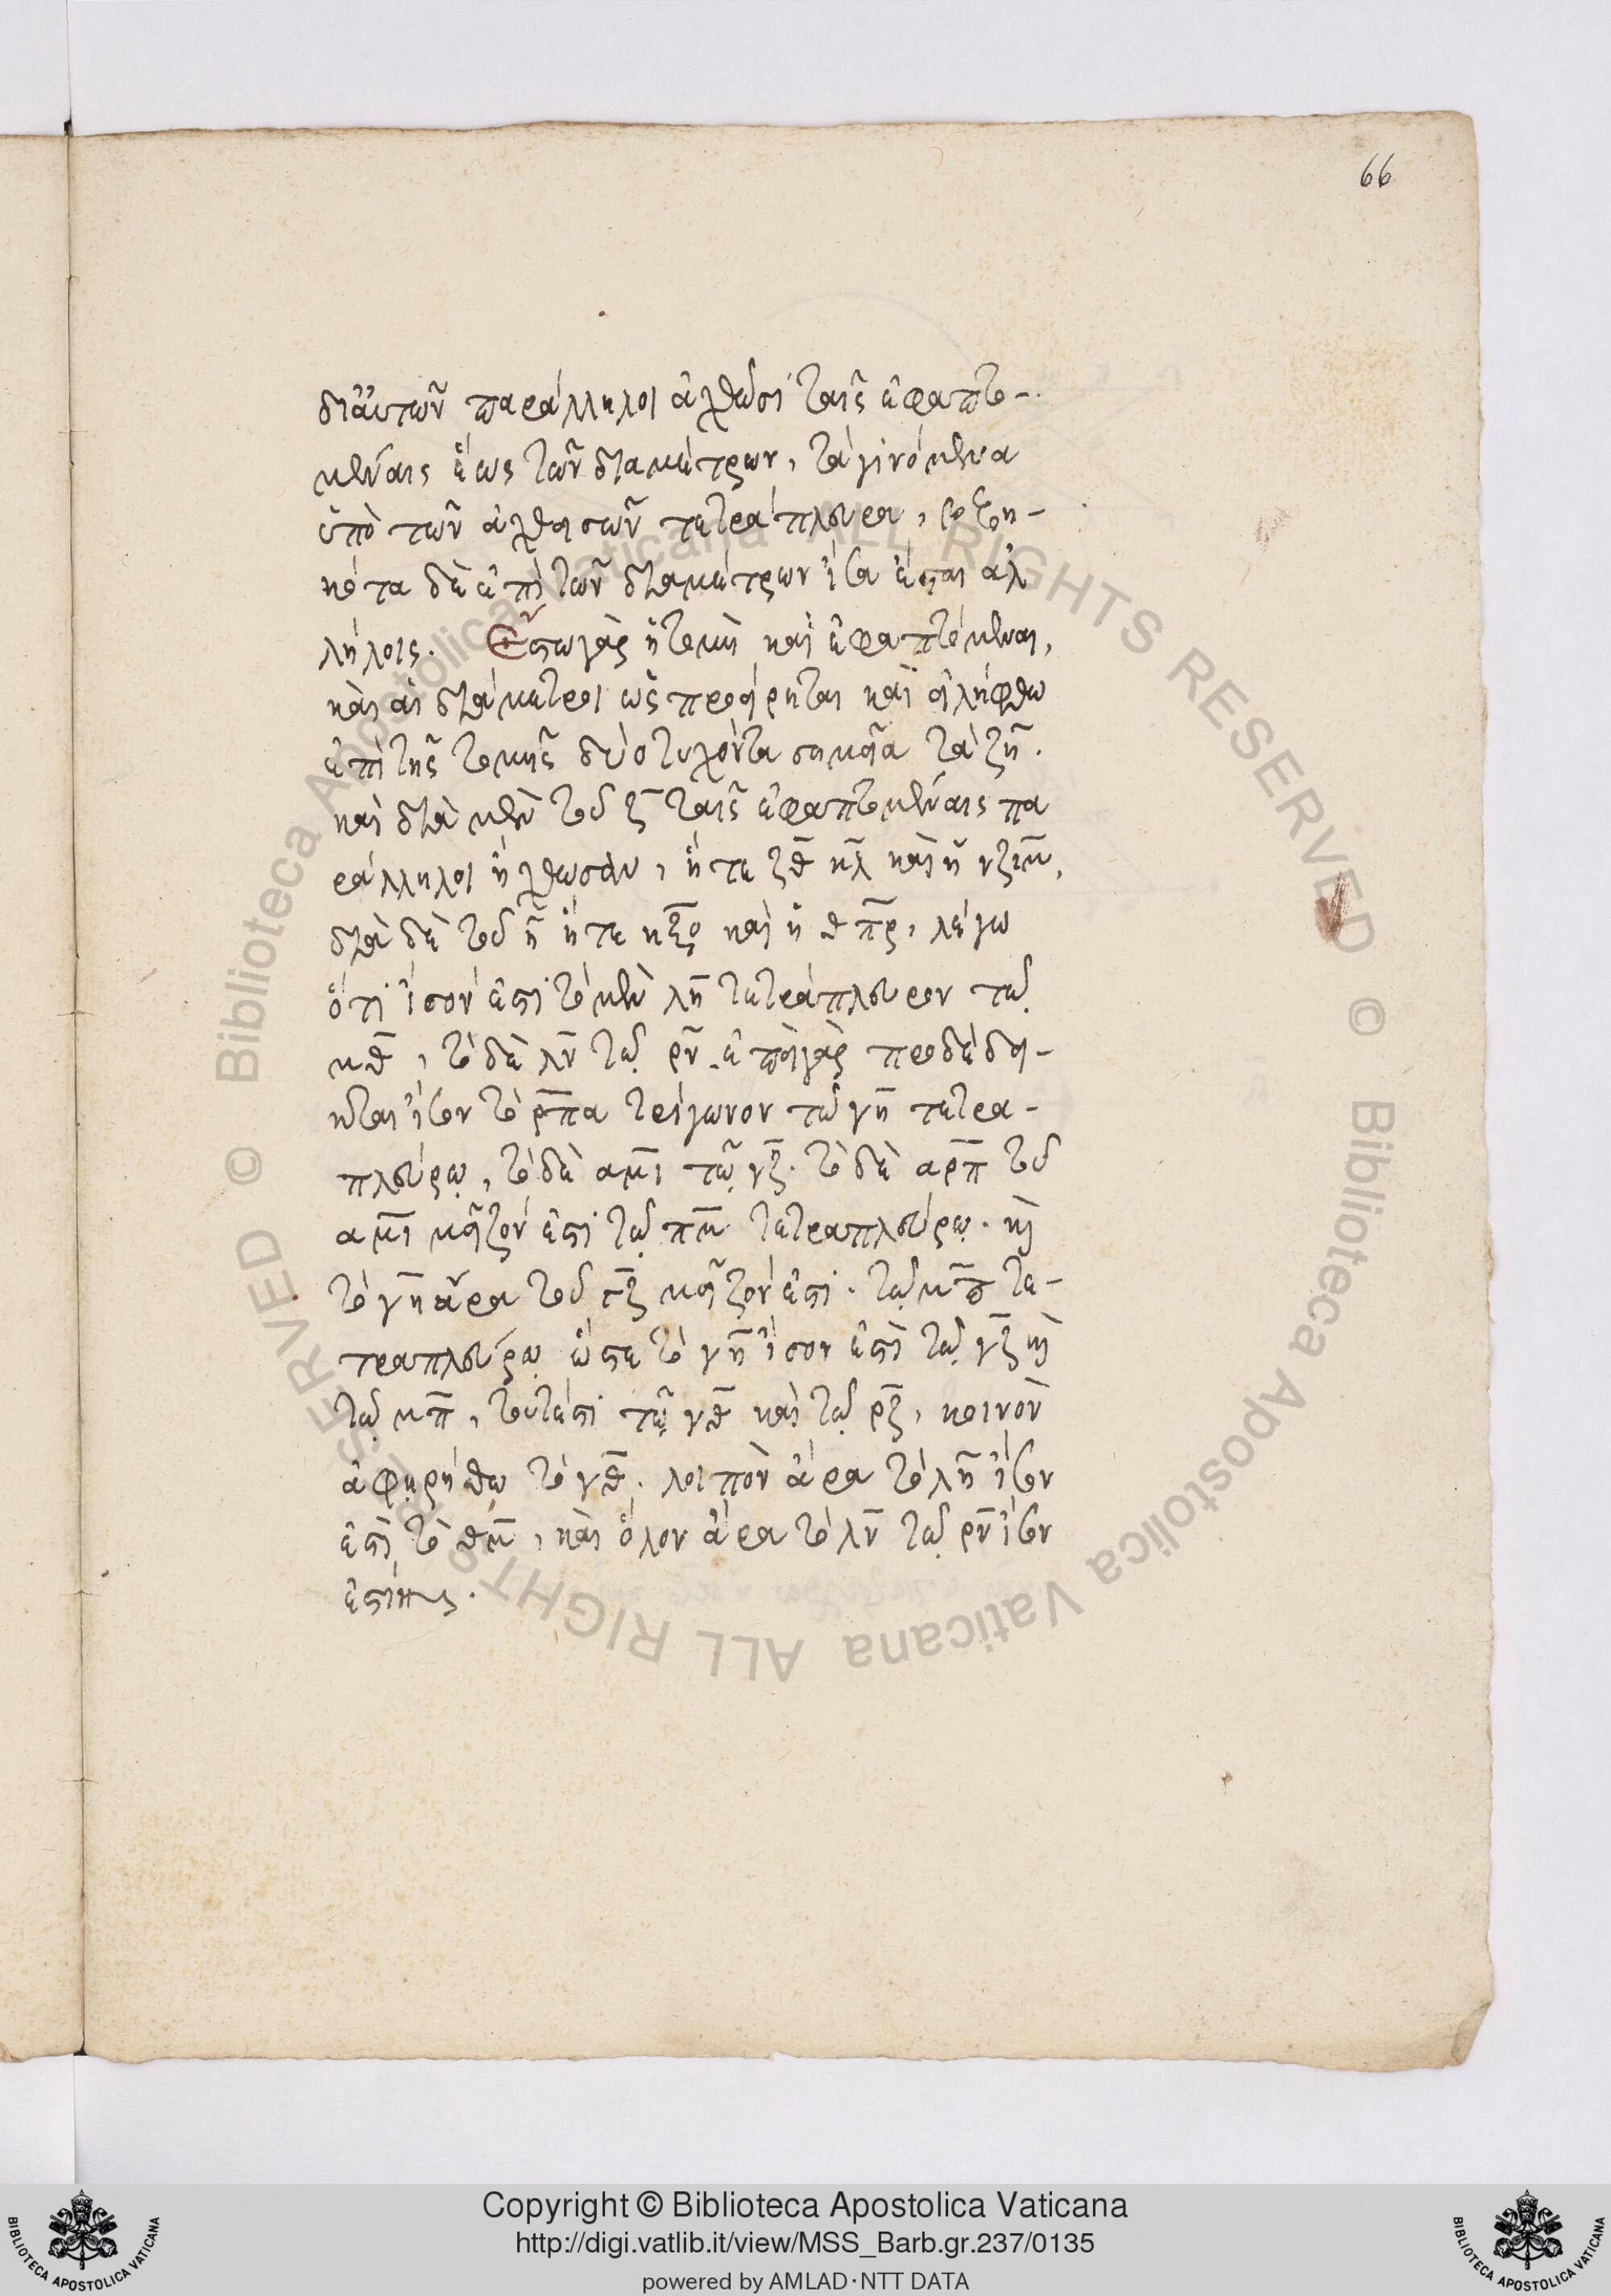 66
δι' αὐτῶν παράλληλοι ἀχθῶσι ταῖς ἐφαπτο-
μέναις ἕως τῶν διαμέτρων, τὰ γινόμενα
ὑπὸ τῶν ἀχθεισῶν τετράπλευρα, βεβη-
κότα δὲ ἐπὶ τῶν διαμέτρων ἴσα ἔσται ἀλ
λήλοις. Ἔστω γὰρ ἡ τομὴ καὶ ἐφαπτόμεναι,
καὶ αἱ διάμετροι ὡς προείρηται καὶ εἰλήφθω
ἐπὶ τῆς τομῆς δύο τυχόντα σημεῖα τὰ ζη.
καὶ διὰ μὲν τοῦ ζ ταῖς ἐφαπτομέναις πα
ράλληλοι ἤχθωσαν, ἥ τε ζθ κλ καὶ ἡ νζιμ,
διὰ δὲ τοῦ η ἥ τε ηξο καὶ ἡ θπρ, λέγω
ὅτι ἴσον ἐστὶ τὸ μὲν λη τετράπλευρον τῷ
μθ, τὸ δὲ λν τῷ ρν. ἐπεὶ γὰρ προδέδει-
κται ἴσον τὸ ρπα τρίγωνον τῷ γη τετρα-
πλεύρῳ, τὸ δὲ αμι τῷ γζ. τὸ δὲ αρπ τοῦ
αμι μεῖζόν ἐστι τῷ πμ τετραπλεύρῳ. καὶ
τὸ γη ἄρα τοῦ γζ μεῖζόν ἐστι. τῷ μπ τε-
τραπλεύρῳ ὥστε τὸ γη ἴσον ἐστὶ τῷ γζ καὶ
τῷ μπ, τουτέστι τῷ γθ καὶ τῷ ρζ, κοινὸν
ἀφῃρήσθω τὸ γθ. λοιπὸν ἄρα τὸ λη ἴσον
ἐστὶ τὸ θμ, καὶ ὅλον ἄρα τὸ λν τῷ ρν ἴσον
ἐστίν
© Biblioteca Apostolica Vaticana ALL RIGHTS RESERVED © Biblioteca Apostolica Vaticana ALL RIGHTS RESERVED
Copyright © Biblioteca Apostolica Vaticana
http://digi.vatlib.it/view/MSS_Barb.gr.237/0135
powered by AMLAD·NTT DATA
BIBLIOTECA APOSTOLICA VATICANA
BIBLIOTECA APOSTOLICA VATICANA